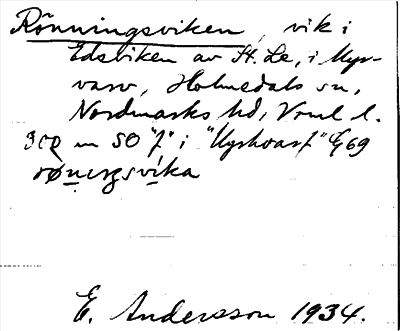 Rönningsviken, vik i
Edsviken av St. Le, i Myr-
varv, Holmedals sn,
Nordmarks hd, Vrml l.
300 m SO "f" i "Myrhvarf" G69
røningsvika
E. Andersson 1934.